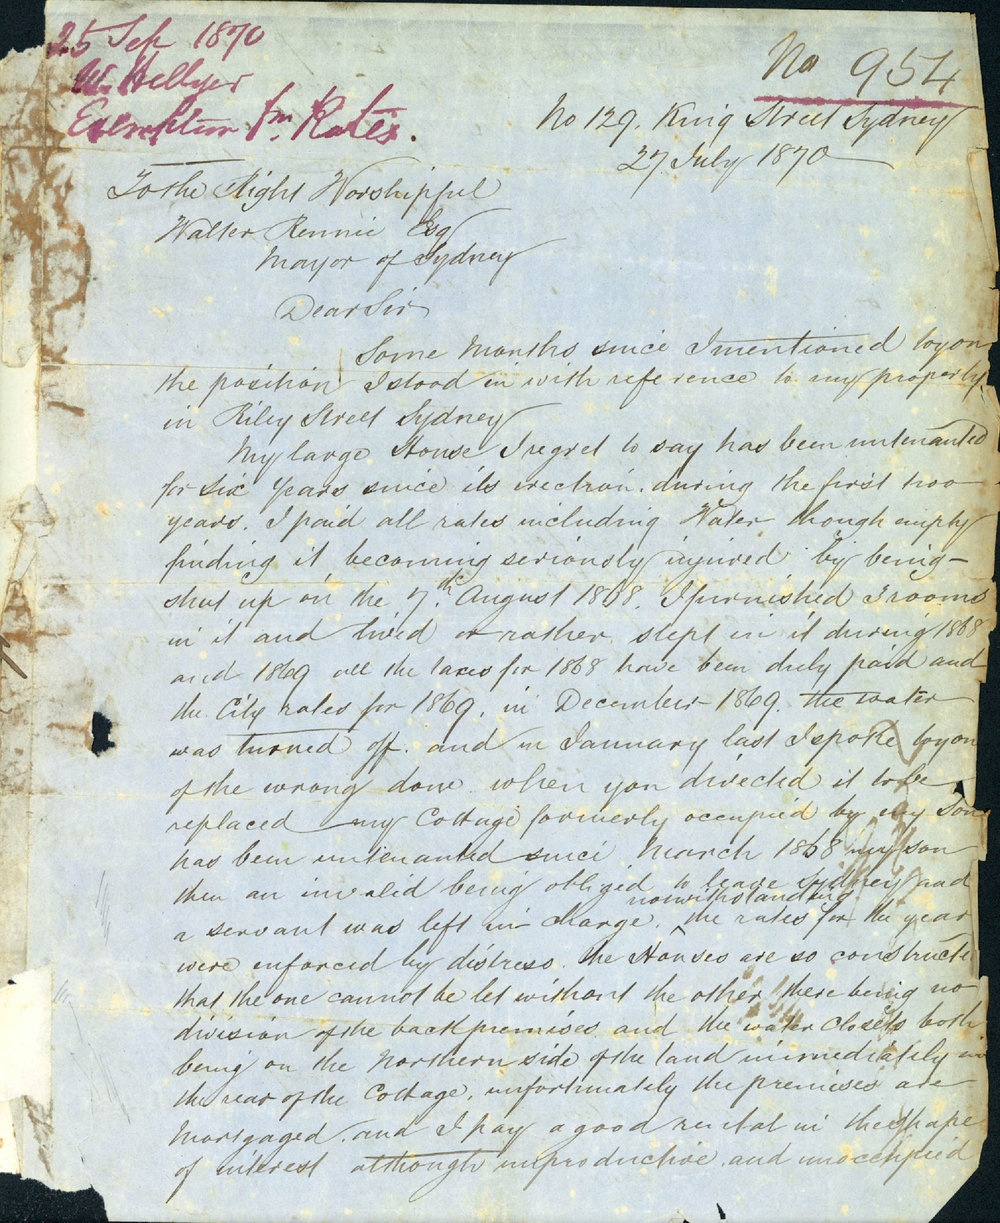 25 Sep 1870
W. Hellyer
Exemption fm. Rates.
No 954
No 129. King Street Sydney
27 July 1870
To the Right Worshipful
Walter Rennie Esq
Mayor of Sydney
Dear Sir
Some Months since I mentioned to you
the position I stood in with reference to my property
in Riley Street Sydney
My large House I regret to say has been untenanted
for six Years since its erection. during the first two
years. I paid all rates including Water though empty
finding it becoming seriously injured by being
shut up on the 7th August 1868. I furnished 3 rooms
in it and lived or rather slept in it during 1868
and 1869 all the taxes for 1868 have been duly paid and
the City rates for 1869. in December 1869. the water
was turned off. and in January last I spoke to you
of the wrong done when you directed it to be
replaced my Cottage formerly occupied by my Son
has been untenanted since March 1868 my son
then an invalid being obliged to leave Sydney and
a servant was left in charge. notwithstanding the rates for the year
were enforced by distress. the Houses are so constructe
that the one cannot be let without the other there being no
division of the back premises and the water closets both
being on the Northern side of the land immediately in
the rear of the Cottage. unfortunately the premises are
Mortgaged. and I pay a good rental in the shape
of interest although unproductive. and unoccupied